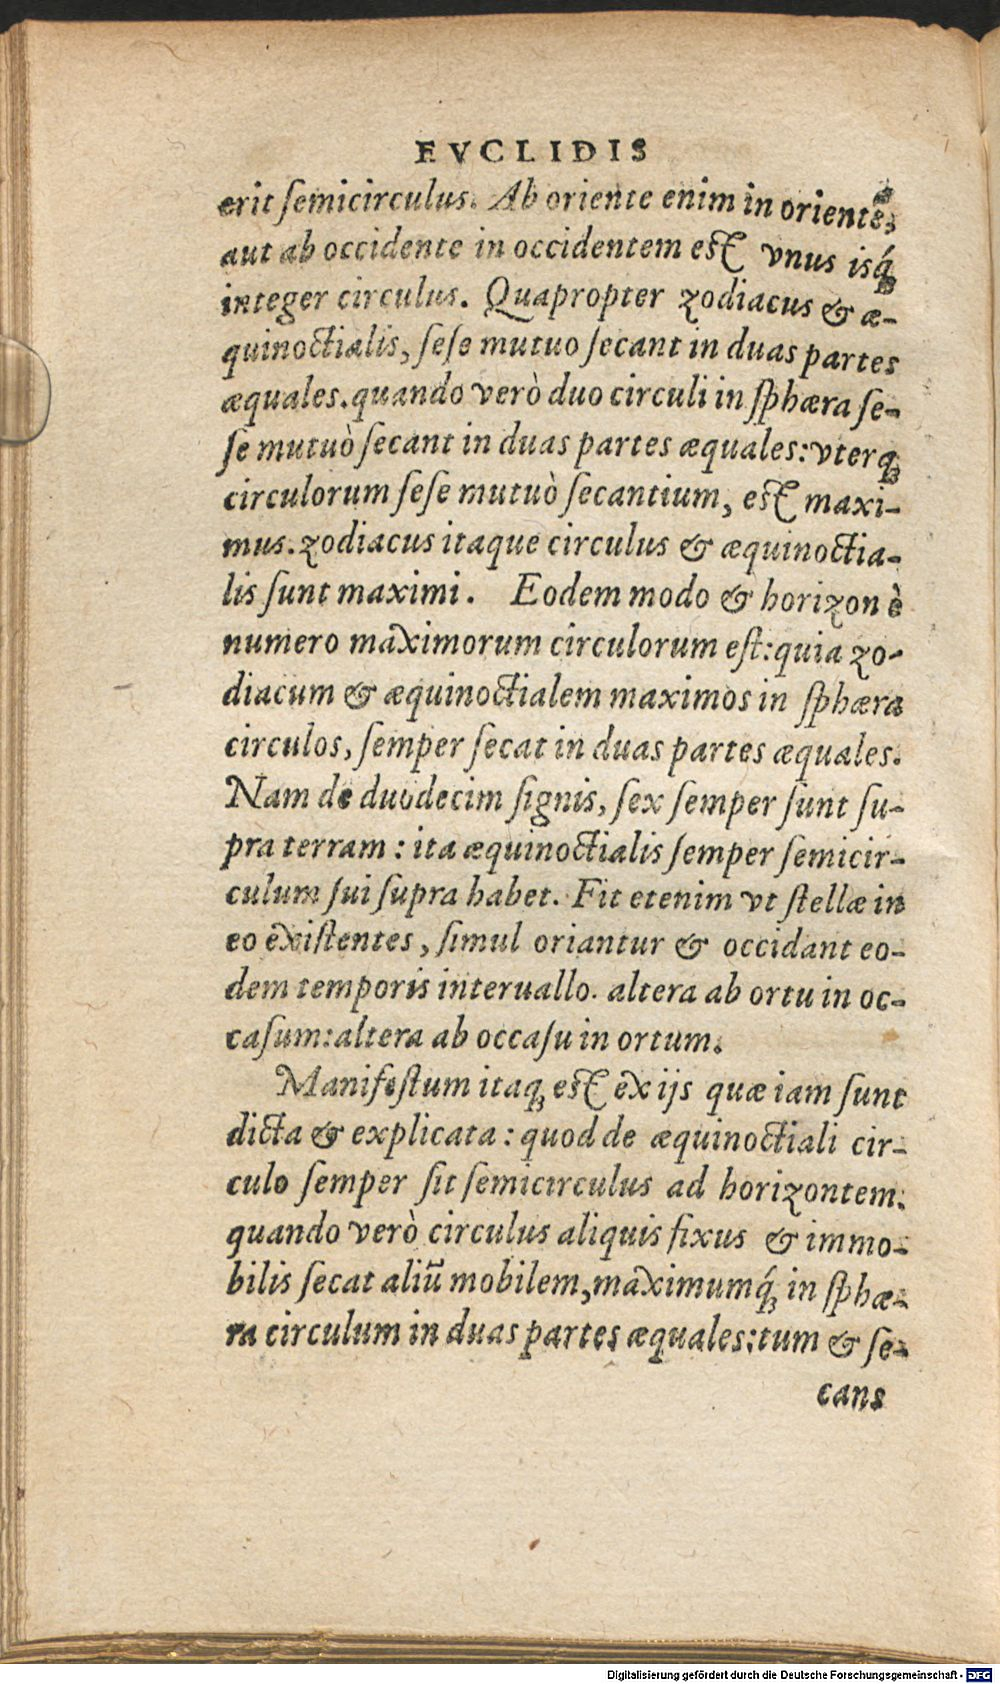 EVCLIDIS
erit ſemicirculus. Ab oriente enim in orientẽ,
aut ab occidente in occidentem eſt vnus iſq́;
integer circulus. Quapropter zodiacus & æ-
quinoctialis, ſeſe mutuo ſecant in duas partes
æquales. quando verò duo circuli in ſphæra ſe-
ſe mutuò ſecant in duas partes æquales: vterq;
circulorum ſeſe mutuò ſecantium, eſt maxi-
mus. zodiacus itaque circulus & æquinoctia-
lis ſunt maximi. Eodem modo & horizon è
numero maximorum circulorum eſt: quia zo-
diacum & æquinoctialem maximos in ſphæra
circulos, ſemper ſecat in duas partes æquales.
Nam de duodecim ſignis, ſex ſemper ſunt ſu-
pra terram: ita æquinoctialis ſemper ſemicir-
culum ſui ſupra habet. Fit etenim vt ſtellæ in
eo exiſtentes, ſimul oriantur & occidant eo-
dem temporis interuallo. altera ab ortu in oc-
caſum: altera ab occaſu in ortum.
Manifeſtum itaq; eſt ex ijs quæ iam ſunt
dicta & explicata: quod de æquinoctiali cir-
culo ſemper ſit ſemicirculus ad horizontem.
quando verò circulus aliquis fixus & immo-
bilis ſecat aliũ mobilem, maximumq́; in ſphæ-
ra circulum in duas partes æquales: tum & ſe-
cans
Digitalisierung gefördert durch die Deutsche Forschungsgemeinschaft - DFG